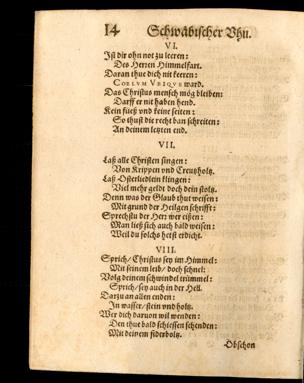 14 Schwäbischer Vhu.
VI.
Ist dir ohn not zu leeren:
Des Herren Himmelfart.
Daran thue dich nit keeren:
COELVM VBIQVE ward.
Das Christus mensch mög bleiben:
Darff er nit haben hend.
Kein füeß vnd keine seiten:
So thust die recht ban schreiten:
An deinem letzten end.
VII.
Laß alle Christen singen:
Von Krippen vnd Creutzholtz.
Laß Osterliedlein klingen:
Viel mehr geldt doch dein stoltz.
Denn was der Glaub thut weisen:
Mit grund der Heilgen schrifft:
Sprechstu der Herr wer eißen:
Man ließ sich auch bald weisen:
Weil du solchs hetst erdicht.
VIII.
Sprich/ Christus sey im Himmel:
Mit seinem leib/ doch schnel:
Volg deinem schwindel trümmel:
Sprich/ sey auch in der Hell.
Darzu an allen enden:
In wasser/ stein vnd holtz.
Wer dich daruon wil wenden:
Den thue bald schiessen schenden:
Mit deinem fiderboltz.
Obschon